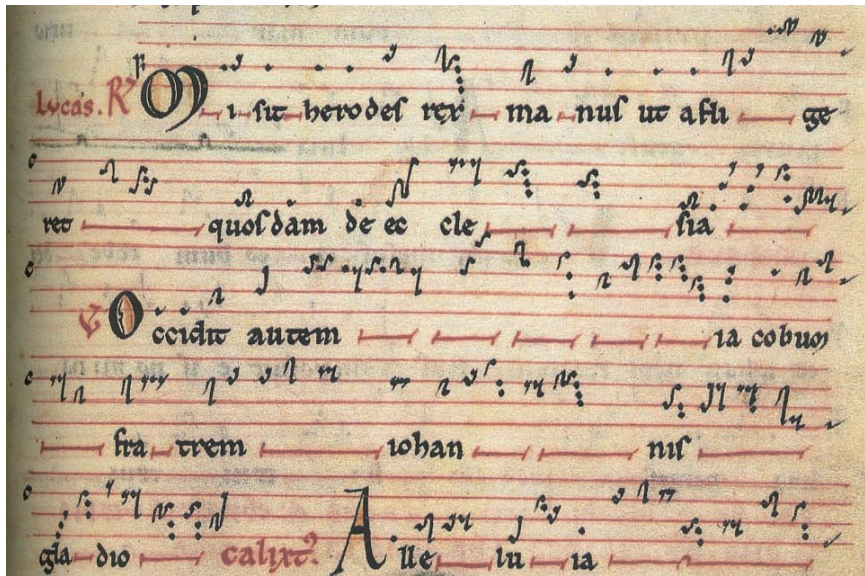 Lucas. R Misit herodes rex manus ut affligeret
quosdam de ecclesia
V Occidit autem iacobum
fratrem iohannis
gladio calixt' Alleluia